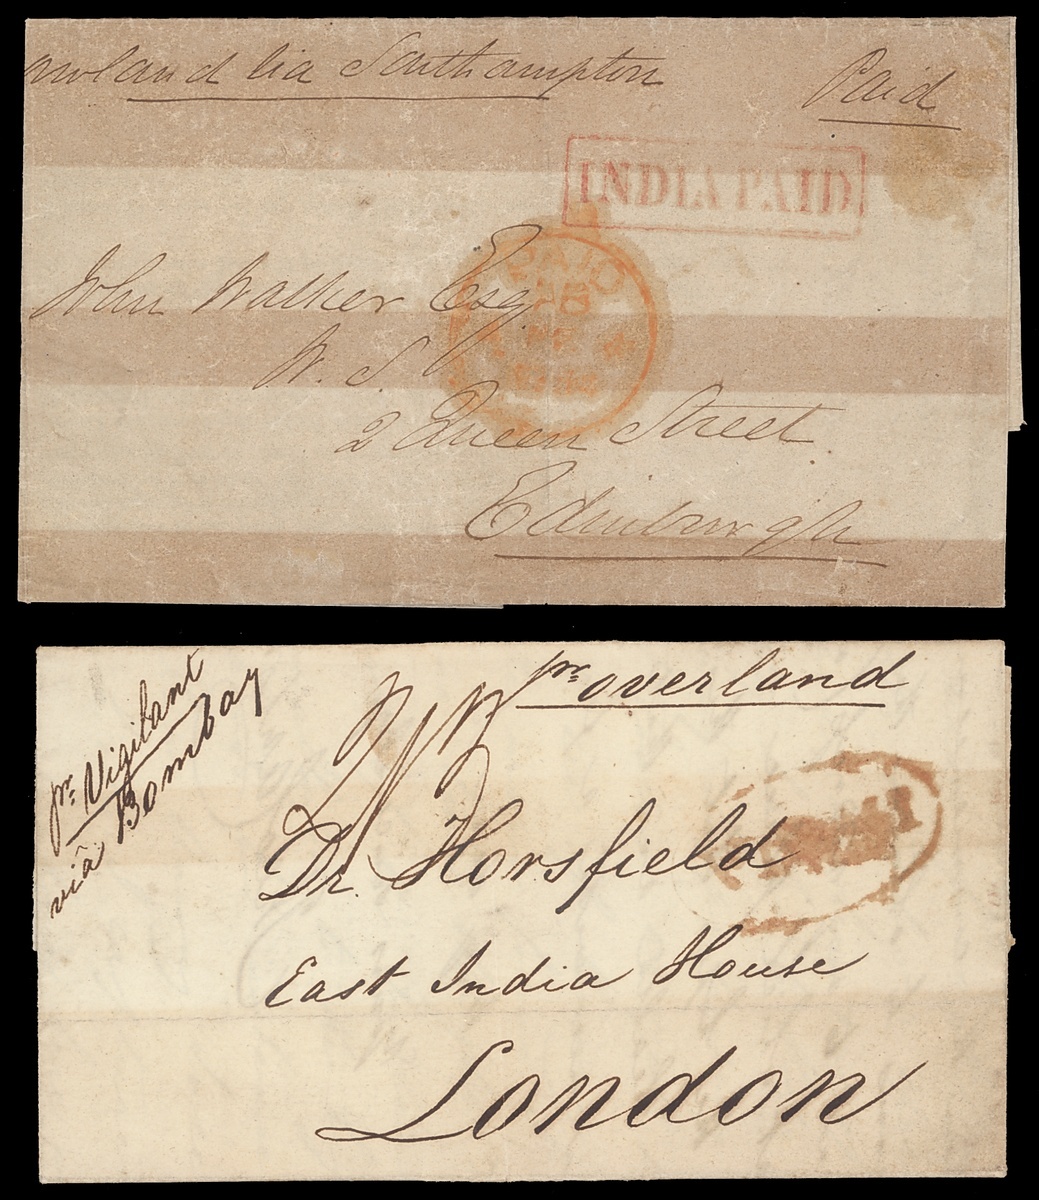 via Southampton
Paid
INDIA PAID
PAID
John Walker Esq
W. S.
2 Queen Street
Edinburgh
pr overland
pr Vigilant
via Bombay
Dr. Horsfield
East India House
London